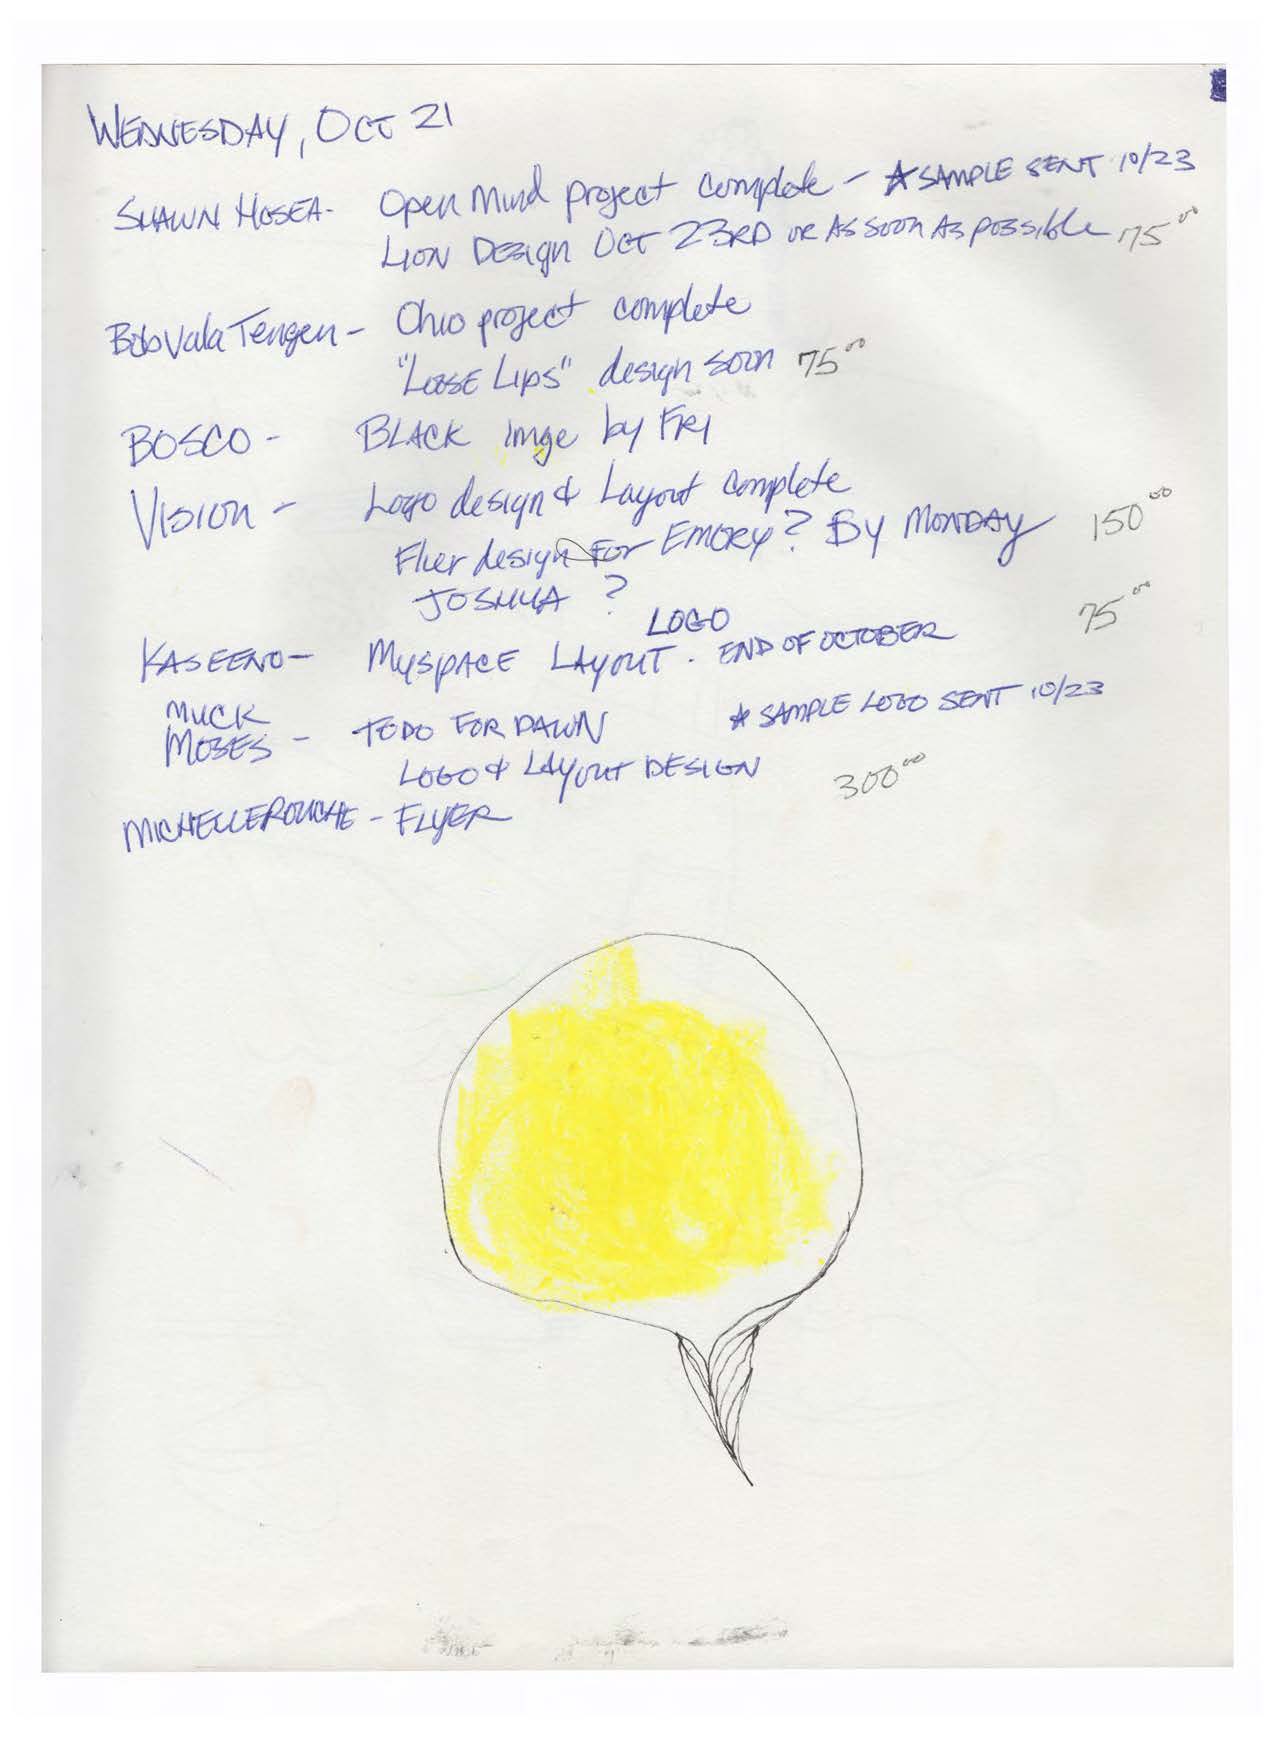 WEDNESDAY, OCT 21
SHAWN HOSEA- Open Mind project complete - ★ SAMPLE SENT 10/23
LION DESIGN OCT 23RD OR AS SOON AS POSSIBLE 75⁰⁰
Ohio project complete
"LOOSE LIPS" design soon 75⁰⁰
BOSCO - BLACK imge by FRI
VISION - Logo design & Layout complete
Flier design FOR EMORY? By MONDAY 150⁰⁰
JOSHUA ?
LOGO 75⁰⁰
KASEENO - MYSPACE LAYOUT. END OF OCTOBER
MUCK
MOSES - TODO FOR DAWN ★ SAMPLE LOGO SENT 10/23
LOGO & LAYOUT DESIGN 300⁰⁰
MICHELLEROUCHE - FLYER